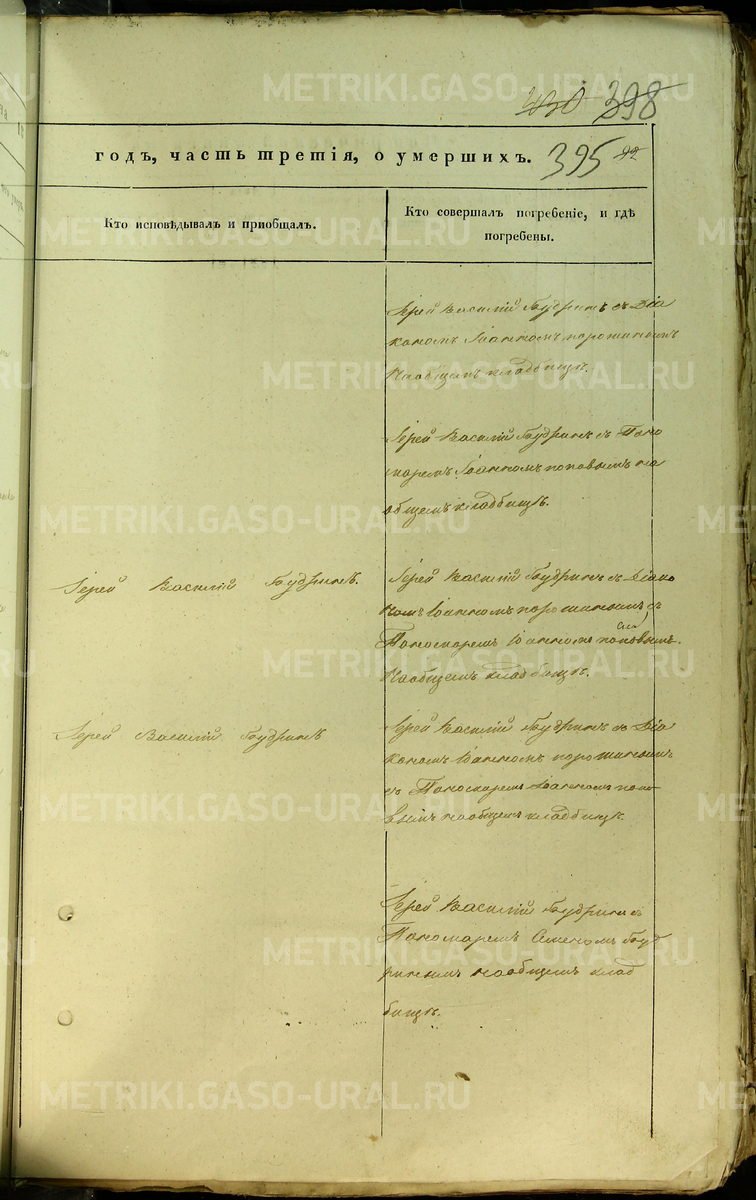 METRIKI.GASO-URAL.RU
398
годъ, часть третія, о умершихъ.
395
Кто исповѣдывалъ и приобщалъ.
Кто совершалъ погребеніе, и гдѣ
погребены.
Іерей Василій Будринъ съ Діа
кономъ Іоанномъ порошинымъ
Наобщемъ кладбищѣ.
Іерей Василій Будринъ съ Поно
маремъ Іоанномъ поповымъ на
общемъ кладбищѣ.
Іерей Василій Будринъ.
Іерей Василій Будринъ съ Діако
номъ Іоанномъ порошинымъ съ
Пономаремъ Іоанномъ поповымъ.
Наобщемъ кладбищѣ.
Іерей Василій Будринъ
Іерей Василій Будринъ съ Діа
кономъ Іоанномъ порошинымъ
съ Пономаремъ Іоанномъ попо
вымъ наобщемъ кладбищѣ.
Іерей Василій Будринъ съ
Пономаремъ Семеномъ Буд
ринымъ наобщемъ клад
бищѣ.